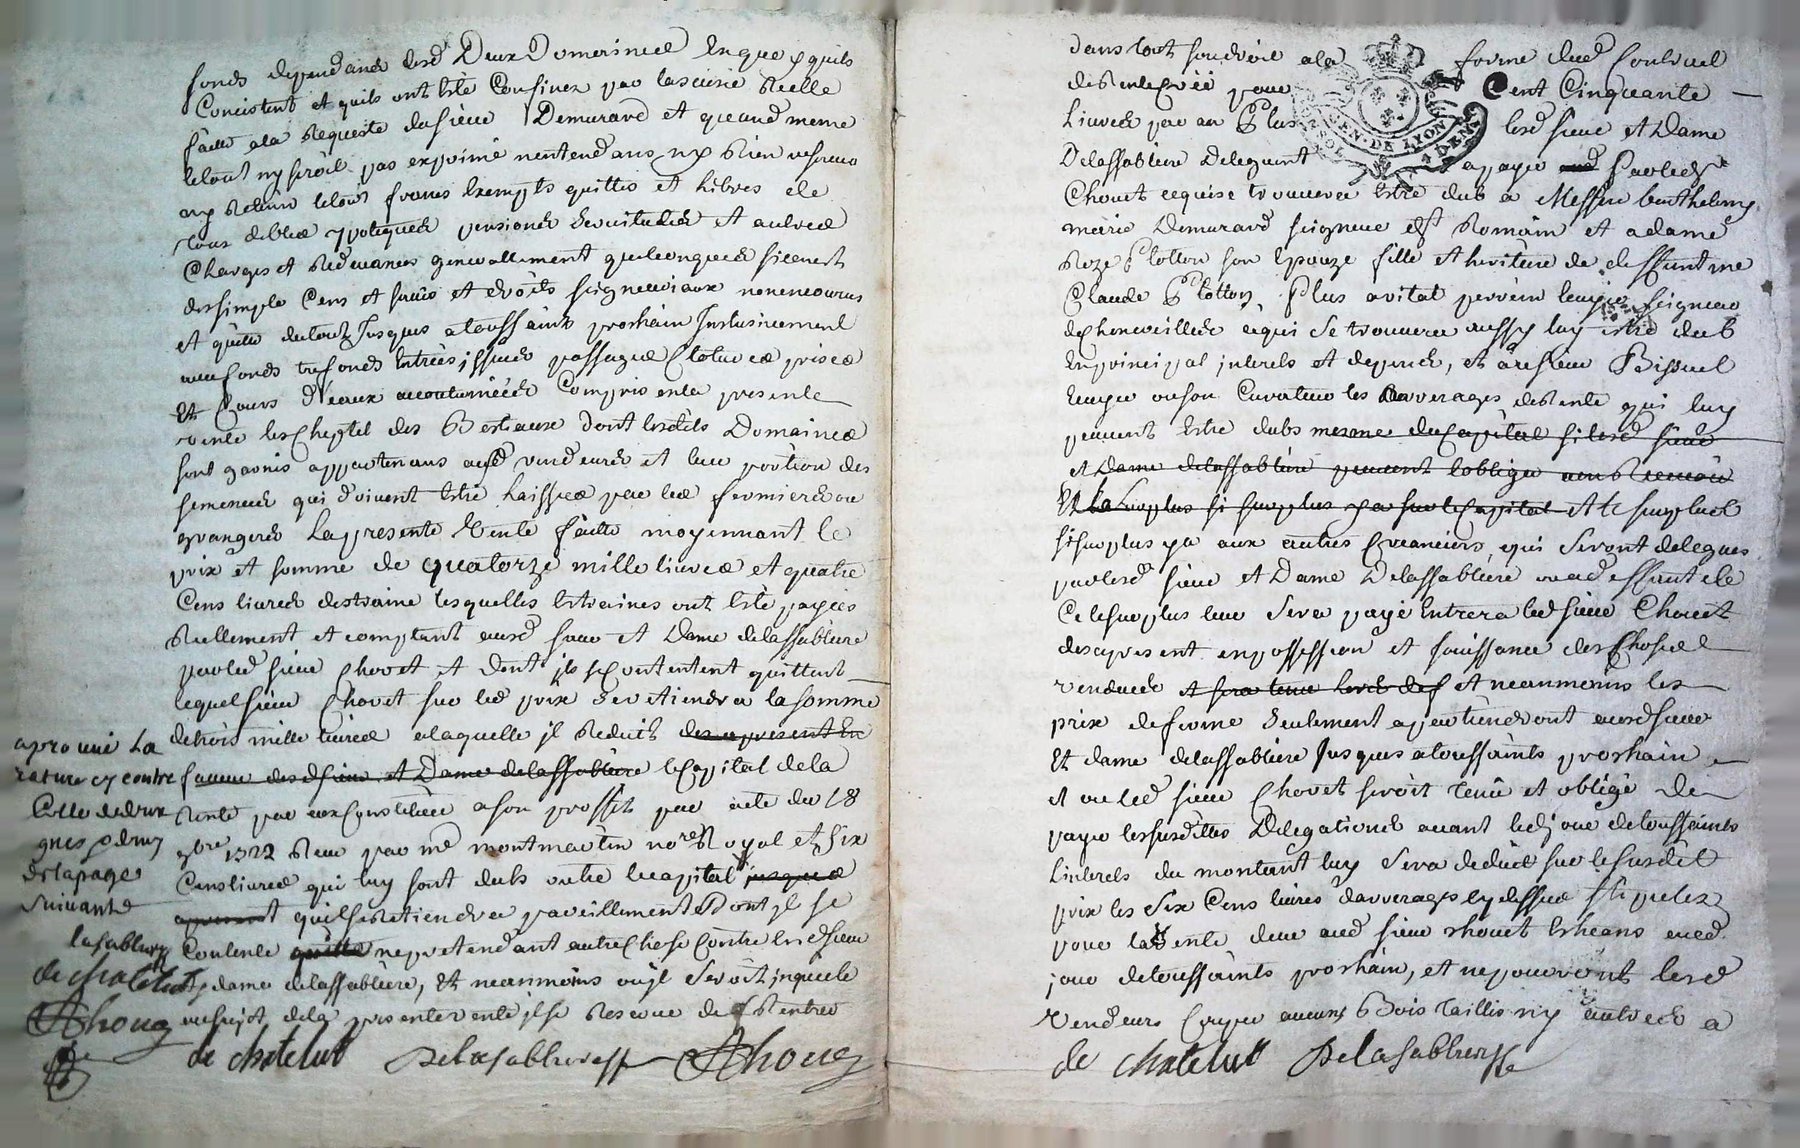 fonds dependant desd Deux Domaines En quoy quils
Concistent et quils ont Esté Confinez par la saisie Reelle
faitte a la Requeste du sieur Demurard et quand meme
le tout ny seroit pas exprimé nentendans ny Rien reserver
ny Retenir le tout francs Exempts quittes et Libres de
tous debtes ypoteques pensiones servitudes et autres
Charges et Redevances generallement quelconques
du simple Cens et servis et droits seigneuriaux
et quitte du tout Jusques a toussaint prochain Inclusivement
avec fonds tresfonds Entrées issues passages prises
Et Cours d'eaux accoutumées Compris en la presente
vente les Cheptel des Bestiaux dont lesdits Domaines
sont garnis appartenans ausd vendeurs et leur portion des
semences qui doivent Estre Laissées par les fermiers ou
grangers La presente Vente faitte moyennant Le
prix et somme de quatorze mille livres et quatre
Cens livres destraine lesquelles Estraines ont Esté payées
Reellement et comptant ausd sieur et Dame delassabliere
par led sieur Chovet et dont ils se contentent quittant
lequel sieur Chovet sur led prix Se retiendra la somme
de trois mille Livres a laquelle il Reduit des a present En
faveur desd sieur et Dame delassabliere le Capital de la
Rente par eux Constituée a son proffit par acte du 18
9bre 1722 Reçu par me montmartin nore Royal et six
Cens livres qui luy sont dubs outre le capital jusques
apresent quil se Retiendra pareillement Et dont il se
Contente quitte ne pretendant autre Chose Contre lesd sieur
Et dame delassabliere, Et neanmoins ou il Seroit inquieté
au sujet de la presente vente il se Reserve de Rentrer
aprouvé La
rature cy contre
Celle de deux
lignes
de la page
suivante
lasabliere
de chatelut
AChovet
de chatelut Delasabliere AChovet
dans tout son droit a la forme dud Contract
de Rente Créé pour Cent Cinquante
Livres par an Plus lesd sieur et Dame
Delassabliere deleguent a payer aud par led sr
Chovet ce quise trouvera Estre dub a Messire barthelemy
marie Demurard seigneur de st Romain et a dame
Roze Plotton son Epouze fille et heritiere de deffunt me
Claude Plotton, Plus a vital perrein Ecuyer seigneur
de chenevilles a qui Se trouvera aussy luy estre dub
En principal interets et depens, et au sieur Bissuel
Ecuyer ou son Curateur les Arrerages de Rente qui luy
peuvent Estre dubs mesme du Capital si lesd sieur
et Dame delassabliere peuvent l'obliger
Et Le surplus si surplus ya sur le Capital Et le surplus
si surplus ya aux autres Creanciers, qui Seront delegués
par lesd sieur et Dame Delassabliere
Ce le surplus leur Sera payé Entrera led sieur Chovet
des a present en possession et jouissance des Choses
vendues et sera tenu Et neanmoins les
prix de ferme Seulement apartiendront ausd sieur
Et dame delassabliere Jusques a toussaints prochain
et ou led sieur Chovet seroit tenu et obligé de
payer les susdittes Delegations avant led jour de toussaints
L'interets du montant luy Sera deduit sur le susdit
prix les Six Cens livres d'arrerages cy dessus stipulez
pour la Rente due aud sieur chovet Echeans aud
jour de toussaints prochain, et ne pouront lesd
Vendeurs Couper aucuns Bois taillis ny autres a
de chatelut Delasabliere
GEN. DE LYON